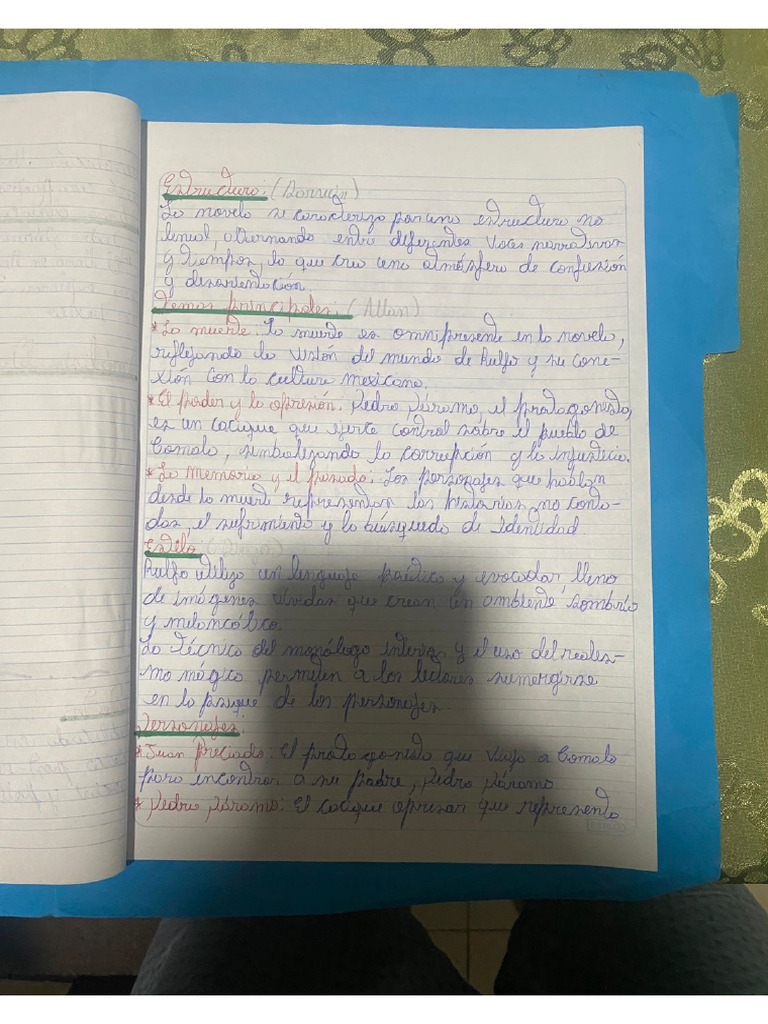 Estructura:
La novela se caracteriza por una estructura no
lineal, alternando entre diferentes voces narrativas
y tiempos, lo que crea una atmósfera de confusión
y desorientación.
Temas principales: (Allan)
*La muerte: La muerte es omnipresente en la novela,
reflejando la visión del mundo de Rulfo y su cone-
xión con la cultura mexicana.
*El poder y la opresión. Pedro Páramo, el protagonista,
es un cacique que ejerce control sobre el pueblo de
Comala, simbolizando la corrupción y la injusticia.
*La Memoria y el pasado: Los personajes que hablan
desde la muerte representan las historias no conta-
das, el sufrimiento y la búsqueda de identidad
Estilo:
Rulfo utiliza un lenguaje poético y evocador, lleno
de imágenes vívidas que crean un ambiente sombrío
y melancólico.
La técnica del monólogo interno y el uso del realis-
mo mágico permiten a los lectores sumergirse
en la psique de los personajes.
Personajes:
*Juan Preciado: El protagonista que viaja a Comala
para encontrar a su padre, Pedro Páramo
*Pedro Páramo: El cacique opresor que representa